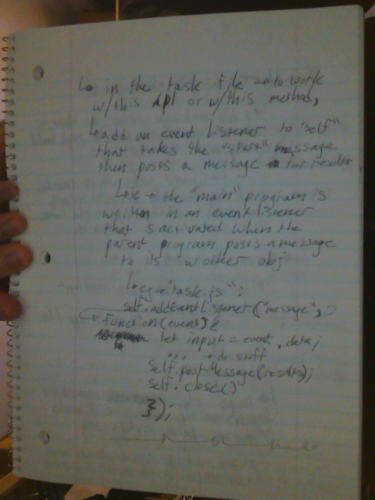 ↳ in the task file to work
w/this API or w/this method,
↳ add an event listener to "self"
that takes the "start" message
then posts a message for results
↳ ie → the "main" program is
written in an event listener
that is activated when the
parent program posts a message
to its worker obj
↳ eg → "task.js":
self.addEventListener("message",
function(event) {
let input = event.data;
... do stuff
self.postMessage(results);
self.close()
});